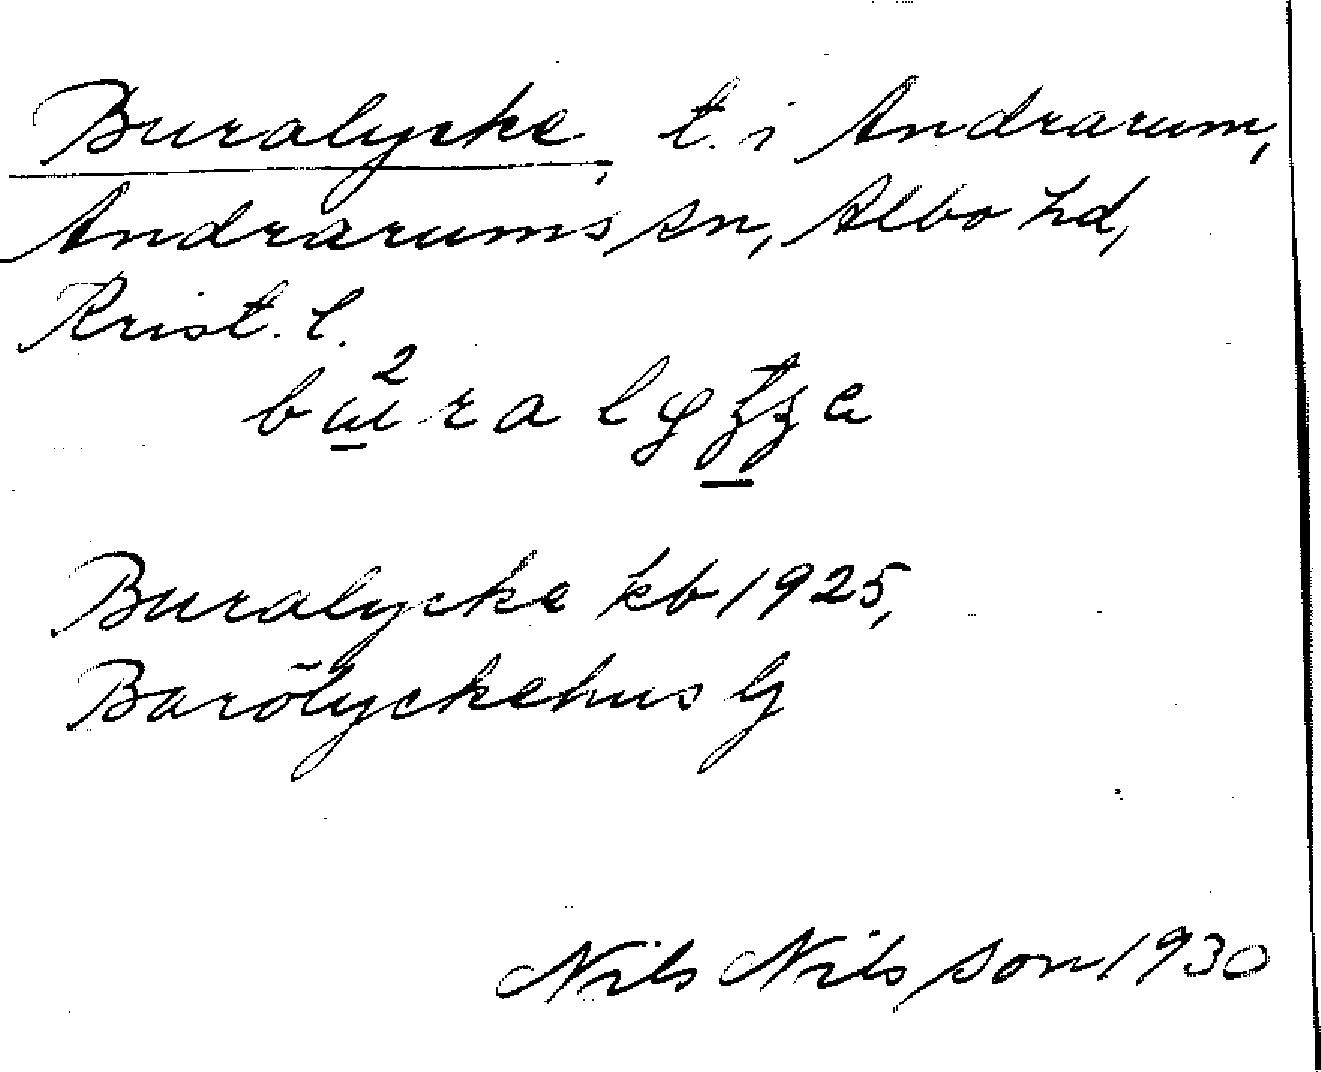 Buralycke, t. i Andrarum,
Andrarums sn, Albo hd,
Krist. l.
Buralycke kb 1925,
Barölyckehus G
Nils Nilsson 1930